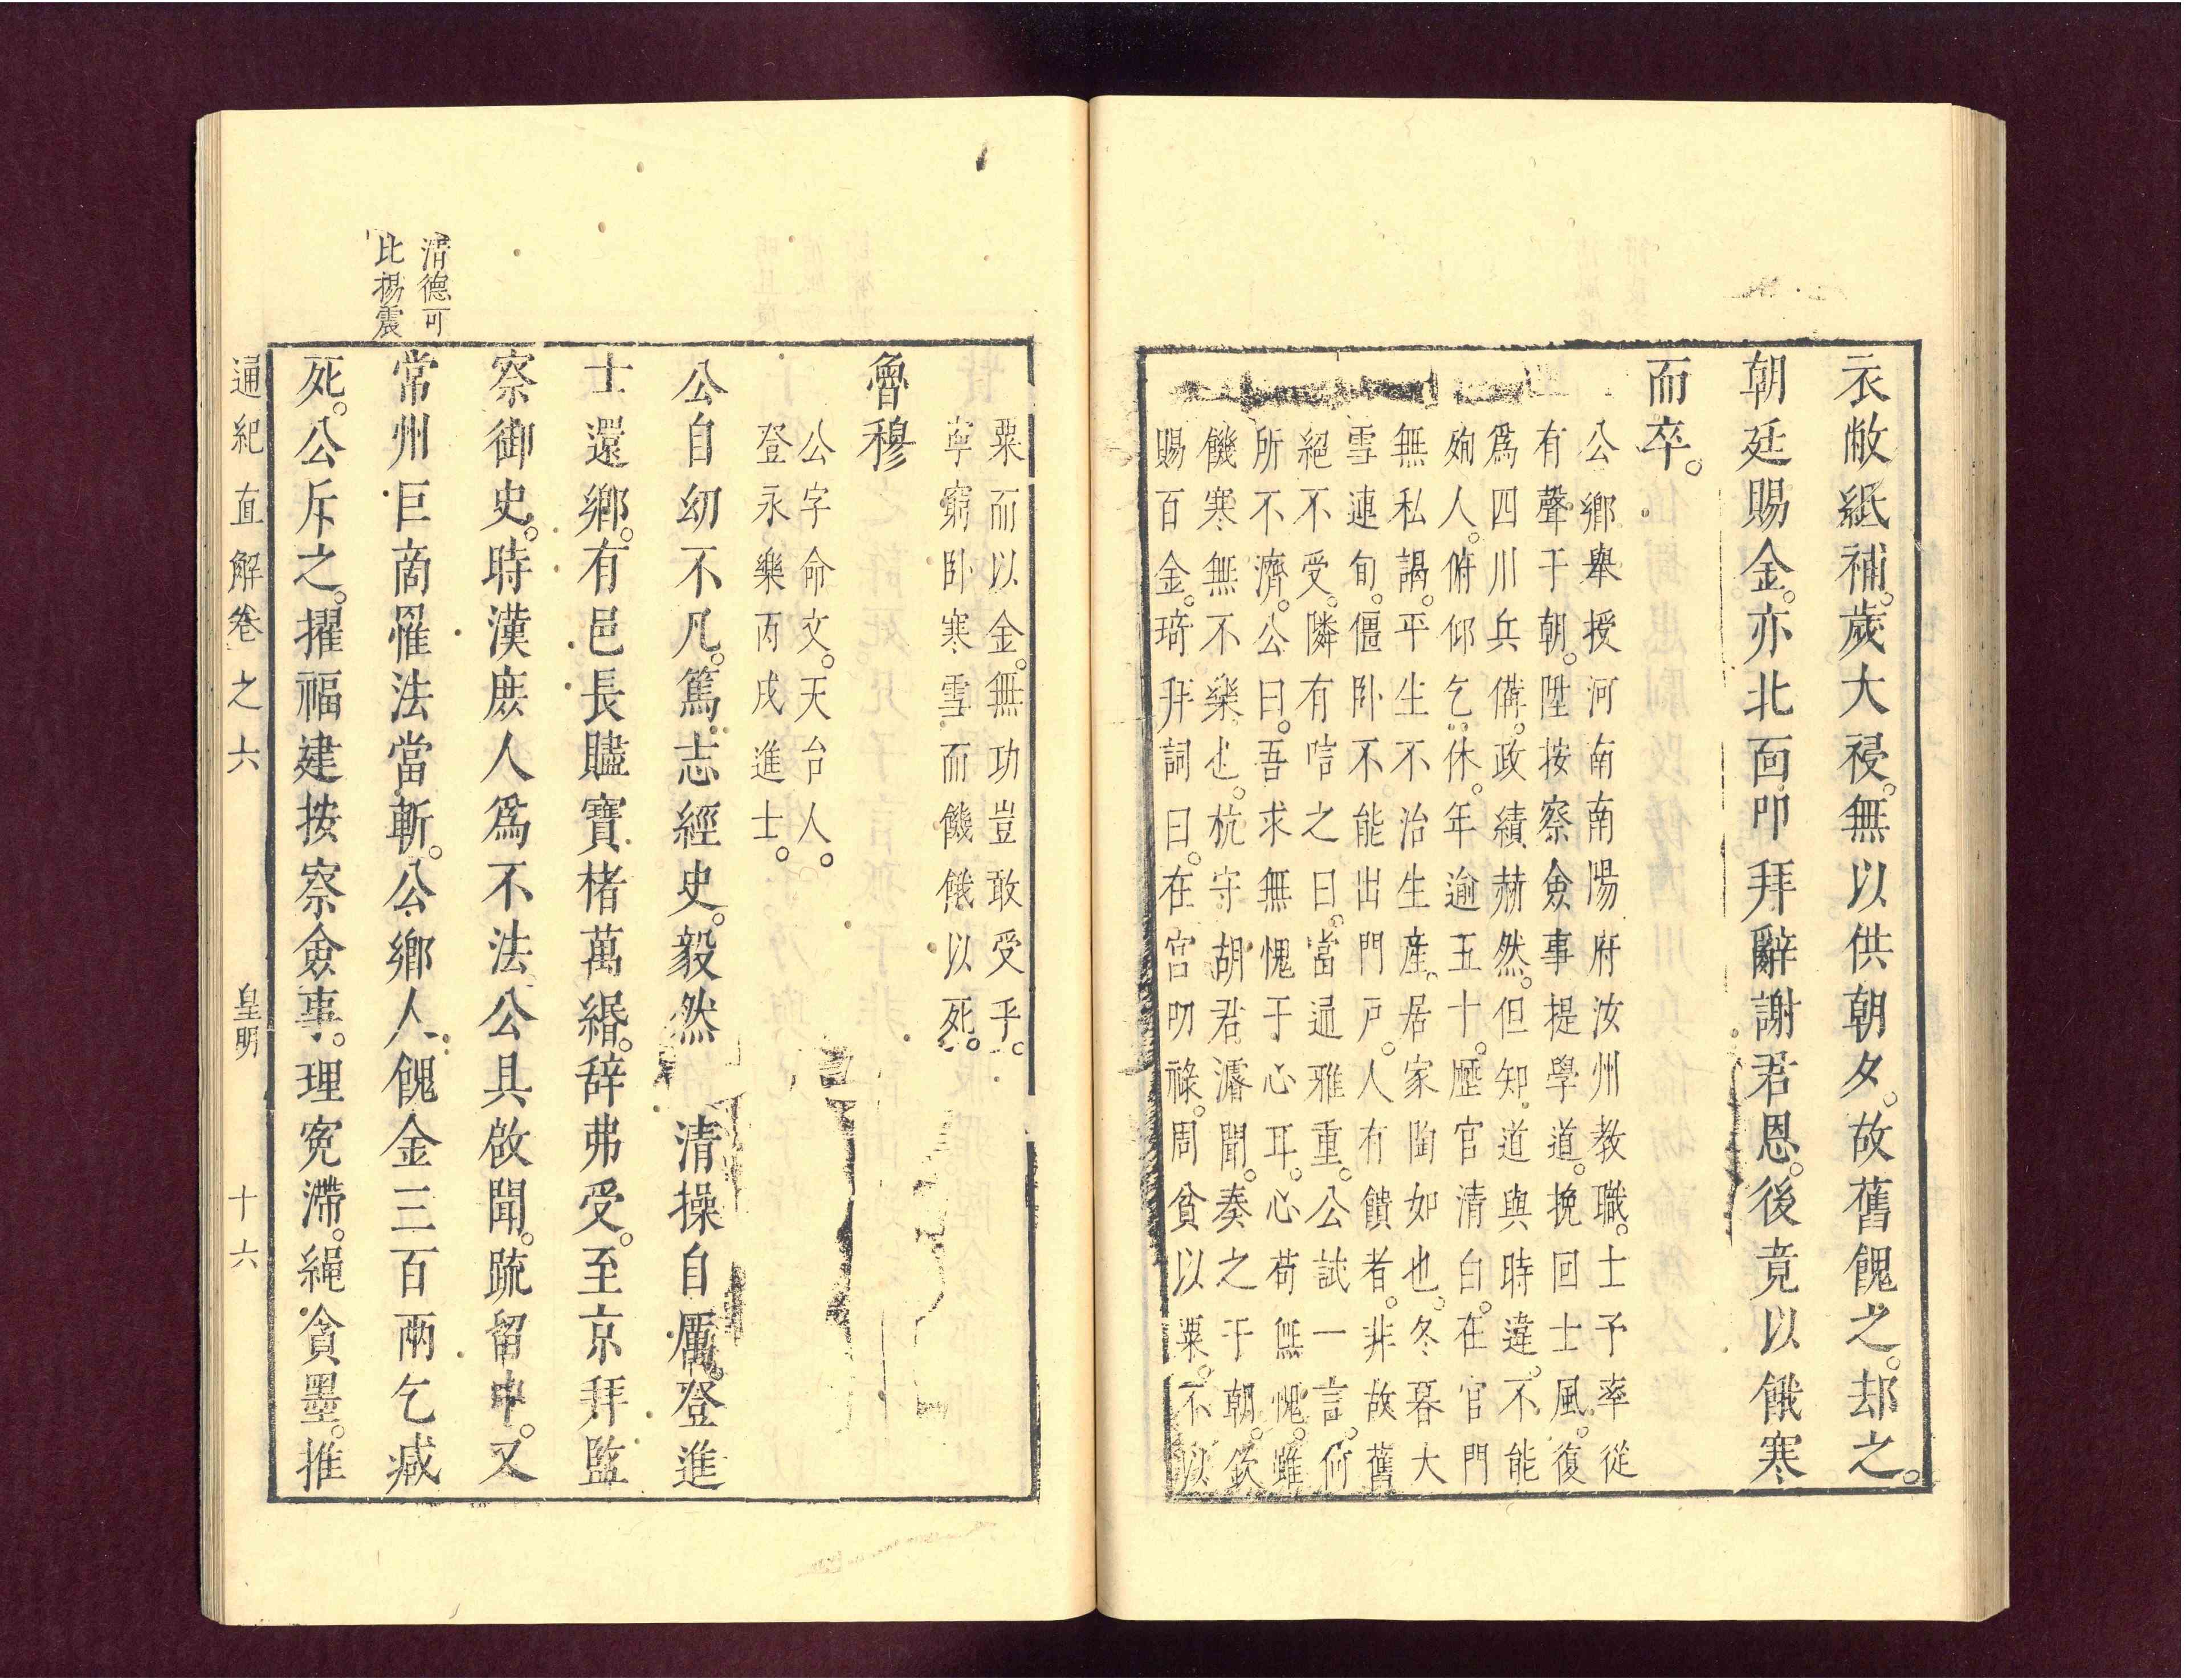 衣敝紙補。歲大祲。無以供朝夕。故舊餽之。却之。
朝廷賜金。亦北靣叩拜辭謝君恩。後竟以餓寒
而卒。
公鄉舉授河南南陽府汝州教職。士予率從
有聲于朝。陞按察僉事提學道。挽回士風。復
爲四川兵備。政績赫然。但知道與時違。不能
殉人。俯仰乞休。年逾五十。歷官清白。在官門
無私謁。平生不治生産。居家陶如也。冬暮大
雪連旬。僵卧不能出門戸。人有饋者。非故舊
絕不受。隣有咭之曰。當道雅重。公試一言。何
所不濟。公曰。吾求無愧于心耳。心苟無愧。雖
饑寒無不樂也。杭守胡君濬聞。奏之于朝。欽
賜百金。琦拜詞曰。在官叨祿。周貧以粟。不以
粟而以金。無功豈敢受乎。
寧窮卧寒雪而饑餓以死。
魯穆
公字命文。天台人。
登永樂丙戌進士。
公自幼不凡。篤志經史。毅然清操自厲。登進
士還鄉。有邑長贐寶楮萬緡。辞弗受。至京拜監
察御史。時漢庶人爲不法。公具啟聞。疏留中。又
常州巨啇罹法當斬。公鄉人餽金三百兩乞減
死。公斥之。擢福建按察僉事。理寃滯。繩貪墨。推
清德可
比楊震
通紀直解卷之六 皇明 十六